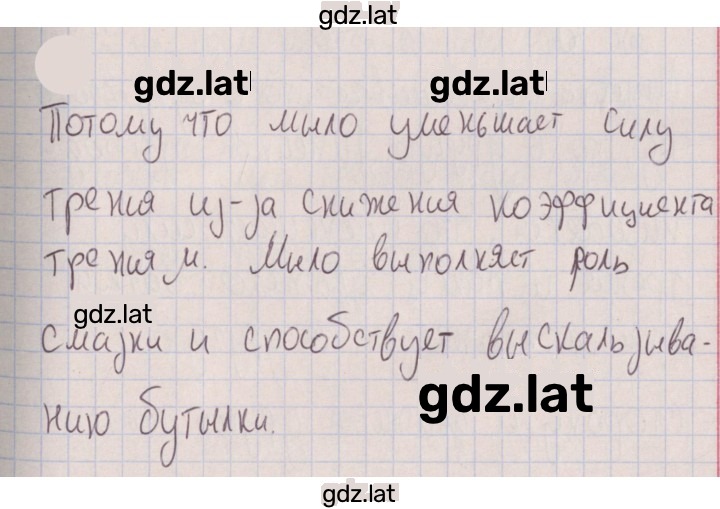 gdz.lat
gdz.lat gdz.lat
Потому что мыло уменьшает силу
трения из-за снижения коэффициента
трения μ. Мыло выполняет роль
gdz.lat
смазки и способствует выскальзыва-
gdz.lat
нию бутылки.
gdz.lat